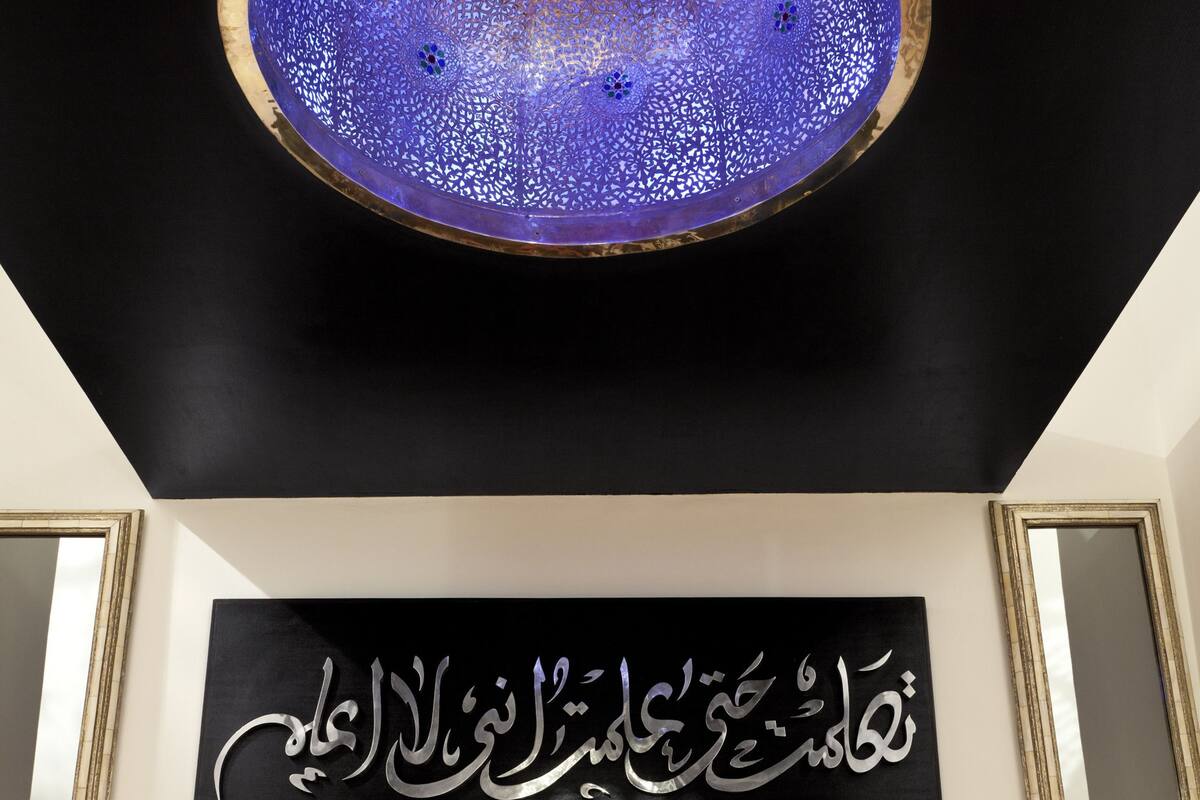 تعلمت حتى علمت انى لا اعلم